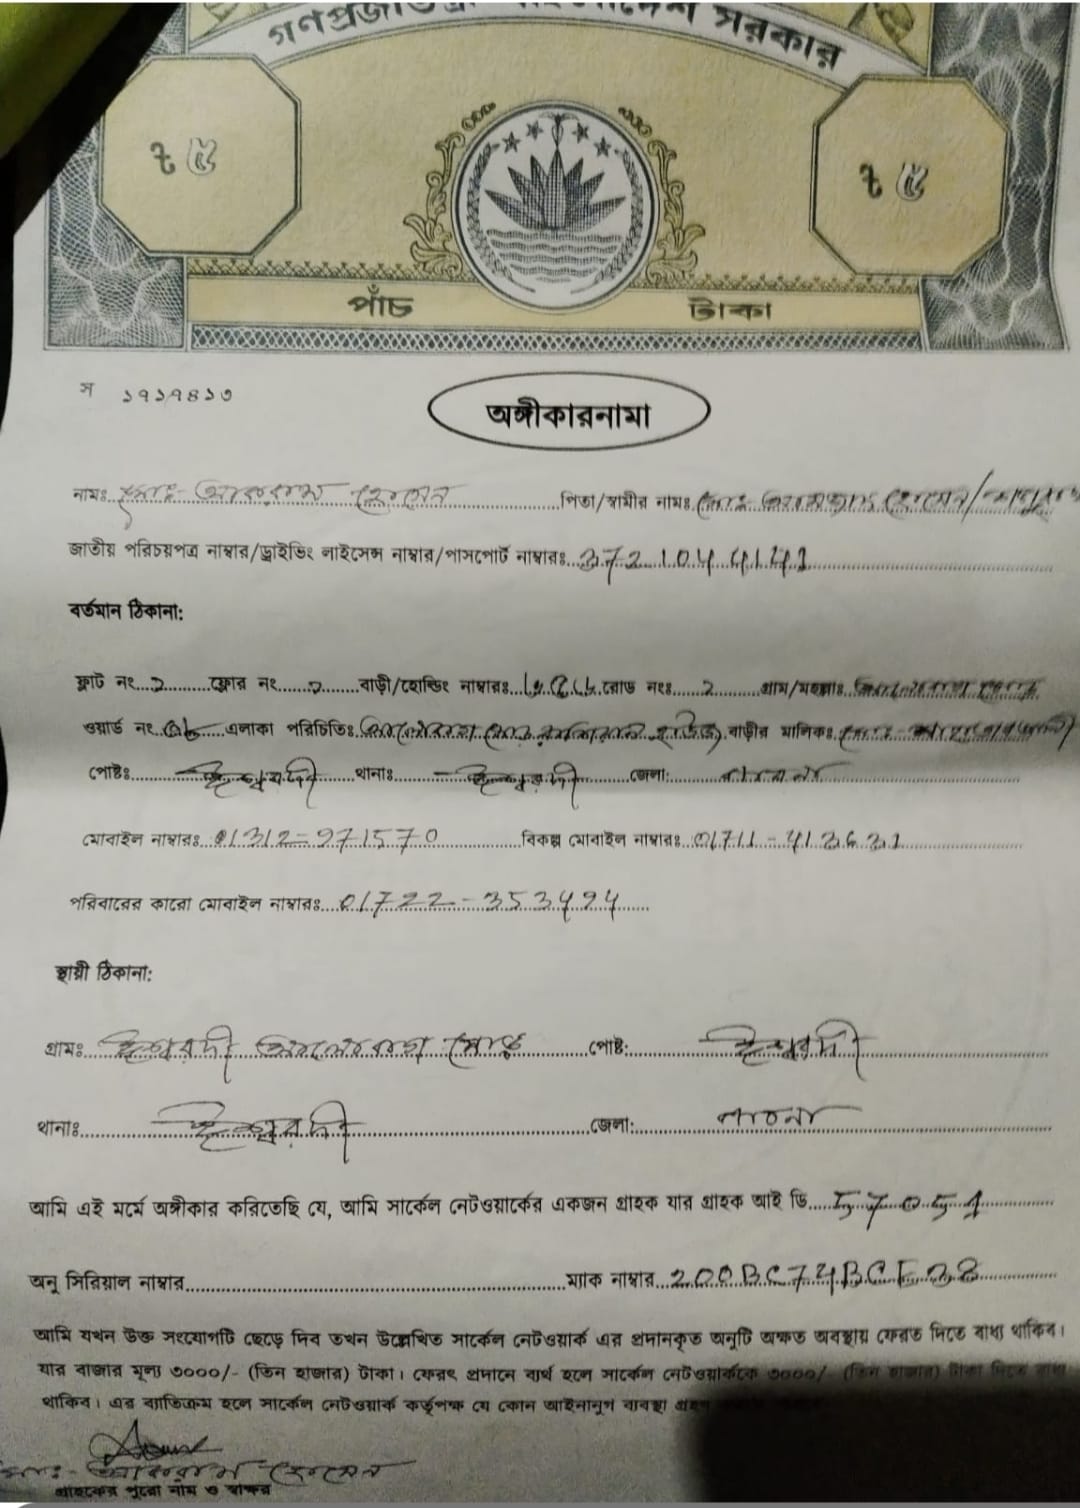 গণপ্রজাতন্ত্রী বাংলাদেশ সরকার
ট ৫
ট ৫
পাঁচ টাকা
স ১৭১৭৪১৩
অঙ্গীকারনামা
নামঃ মোঃ- আকরাম হোসেন পিতা/স্বামীর নামঃ মোঃ হোসেন/
জাতীয় পরিচয়পত্র নাম্বার/ড্রাইভিং লাইসেন্স নাম্বার/পাসপোর্ট নাম্বারঃ 372104
বর্তমান ঠিকানা:
ফ্লাট নং ফ্লোর নং বাড়ী/হোল্ডিং নাম্বারঃ রোড নংঃ গ্রাম/মহল্লাঃ
ওয়ার্ড নং এলাকা পরিচিতিঃ বাড়ীর মালিকঃ
পোষ্টঃ ঈশ্বরদী থানাঃ ঈশ্বরদী জেলা: পাবনা
মোবাইল নাম্বারঃ 01312-971570 বিকল্প মোবাইল নাম্বারঃ 01711-413631
পরিবারের কারো মোবাইল নাম্বারঃ 01722-353494
স্থায়ী ঠিকানা:
গ্রামঃ ঈশ্বরদী মোড় পোষ্ট: ঈশ্বরদী
থানাঃ ঈশ্বরদী জেলা: পাবনা
আমি এই মর্মে অঙ্গীকার করিতেছি যে, আমি সার্কেল নেটওয়ার্কের একজন গ্রাহক যার গ্রাহক আই ডি 57051
অনু সিরিয়াল নাম্বার ম্যাক নাম্বার 200BC74BCF38
আমি যখন উক্ত সংযোগটি ছেড়ে দিব তখন উল্লেখিত সার্কেল নেটওয়ার্ক এর প্রদানকৃত অনুটি অক্ষত অবস্থায় ফেরত দিতে বাধ্য থাকিব।
যার বাজার মূল্য ৩০০০/- (তিন হাজার) টাকা। ফেরৎ প্রদানে ব্যর্থ হলে সার্কেল নেটওয়ার্ককে ৩০০০/- (তিন হাজার) টাকা দিতে বাধ্য
থাকিব। এর ব্যতিক্রম হলে সার্কেল নেটওয়ার্ক কর্তৃপক্ষ যে কোন আইনানুগ ব্যবস্থা গ্রহণ
মোঃ- আকরাম হোসেন
গ্রাহকের পুরো নাম ও স্বাক্ষর